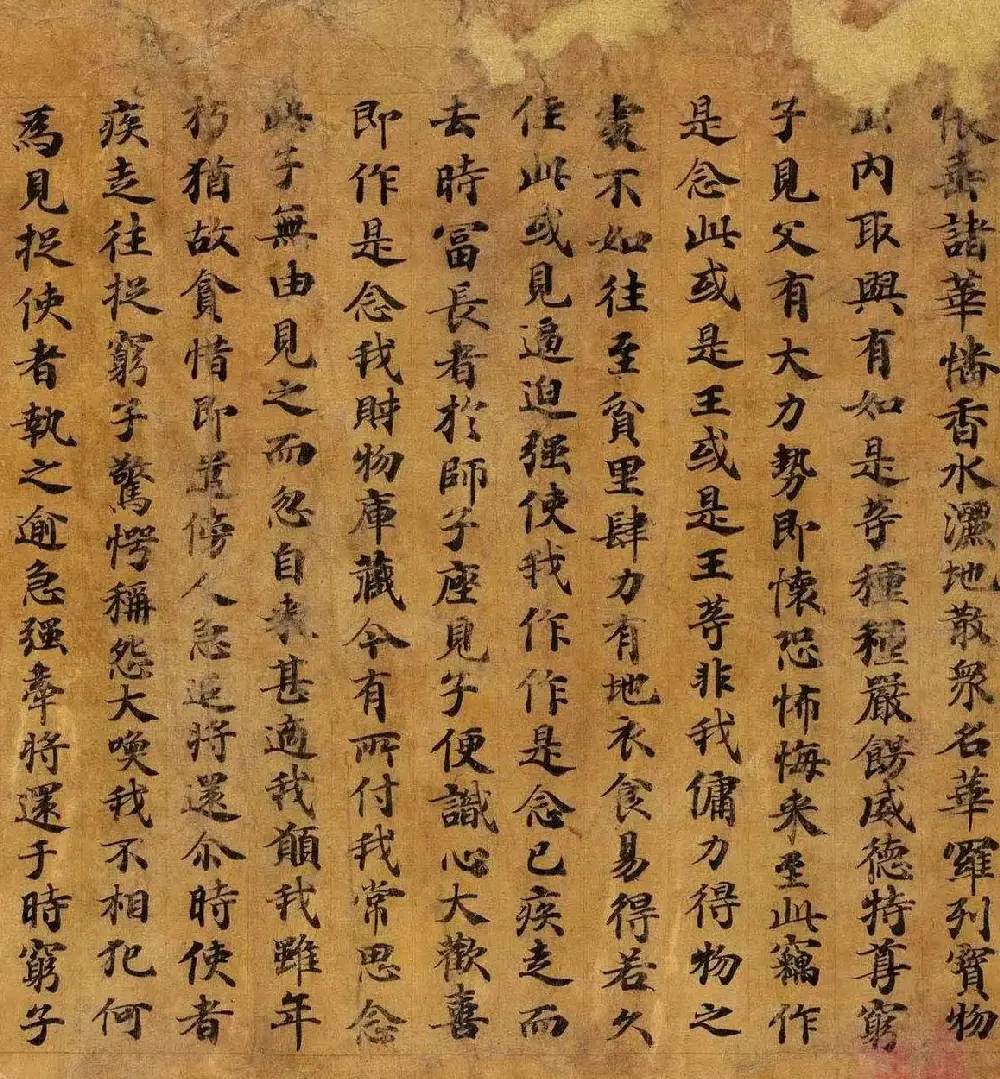 帳垂諸華幡香水灑地散衆名華羅列寶物
出內取與有如是等種種嚴餝威德特尊窮
子見父有大力勢即懷恐怖悔来至此竊作
是念此或是王或是王等非我傭力得物之
處不如往至貧里肆力有地衣食易得若久
住此或見逼迫强使我作作是念已疾走而
去時冨長者於師子座見子便識心大歡喜
即作是念我財物庫藏今有所付我常思念
此子無由見之而忽自来甚適我願我雖年
朽猶故貪惜即遣傍人急追將還尒時使者
疾走往捉窮子驚愕稱怨大喚我不相犯何
爲見捉使者執之逾急强牽將還于時窮子